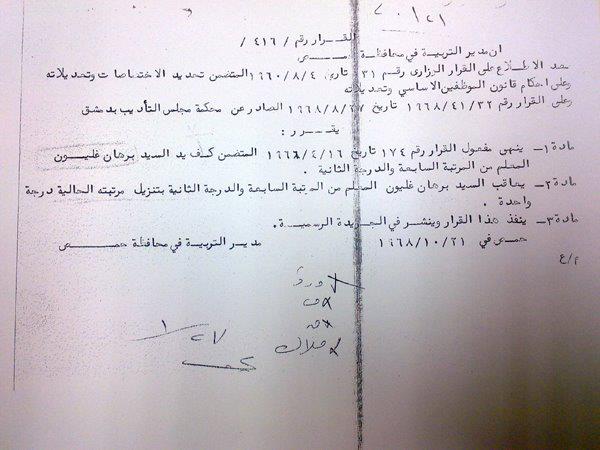 القرار رقم / ٤١٦ /
ان مدير التربية في محافظة حمص
بعد الاطلاع على القرار الوزارى رقم ٣١ تاريخ ١٩٦٠/٨/٤ المتضمن تحديد الاختصاصات وتعديلاته
وعلى احكام قانون الموظفين الاساسي وتعديلاته
وعلى القرار رقم ١٩٦٨/٤١/٣٢ تاريخ ١٩٦٨/٨/٢٧ الصادر عن محكمة مجلس التأديب بدمشق
يقـــرر :
مادة ١- ينهى مفعول القرار رقم ١٧٤ تاريخ ١٩٦٦/٤/١٦ المتضمن كف يد السيد برهان غليون
المعلم من المرتبة السابعة والدرجة الثانية .
مادة ٢- يعاقب السيد برهان غليون المعلم من المرتبة السابعة والدرجة الثانية بتنزيل مرتبته الحالية درجة
واحدة .
مادة ٣- ينفذ هذا القرار وينشر في الجريدة الرسمية .
حمص في ١٩٦٨/١٠/٢١ مدير التربية في محافظة حمص
ع/م
ملاك